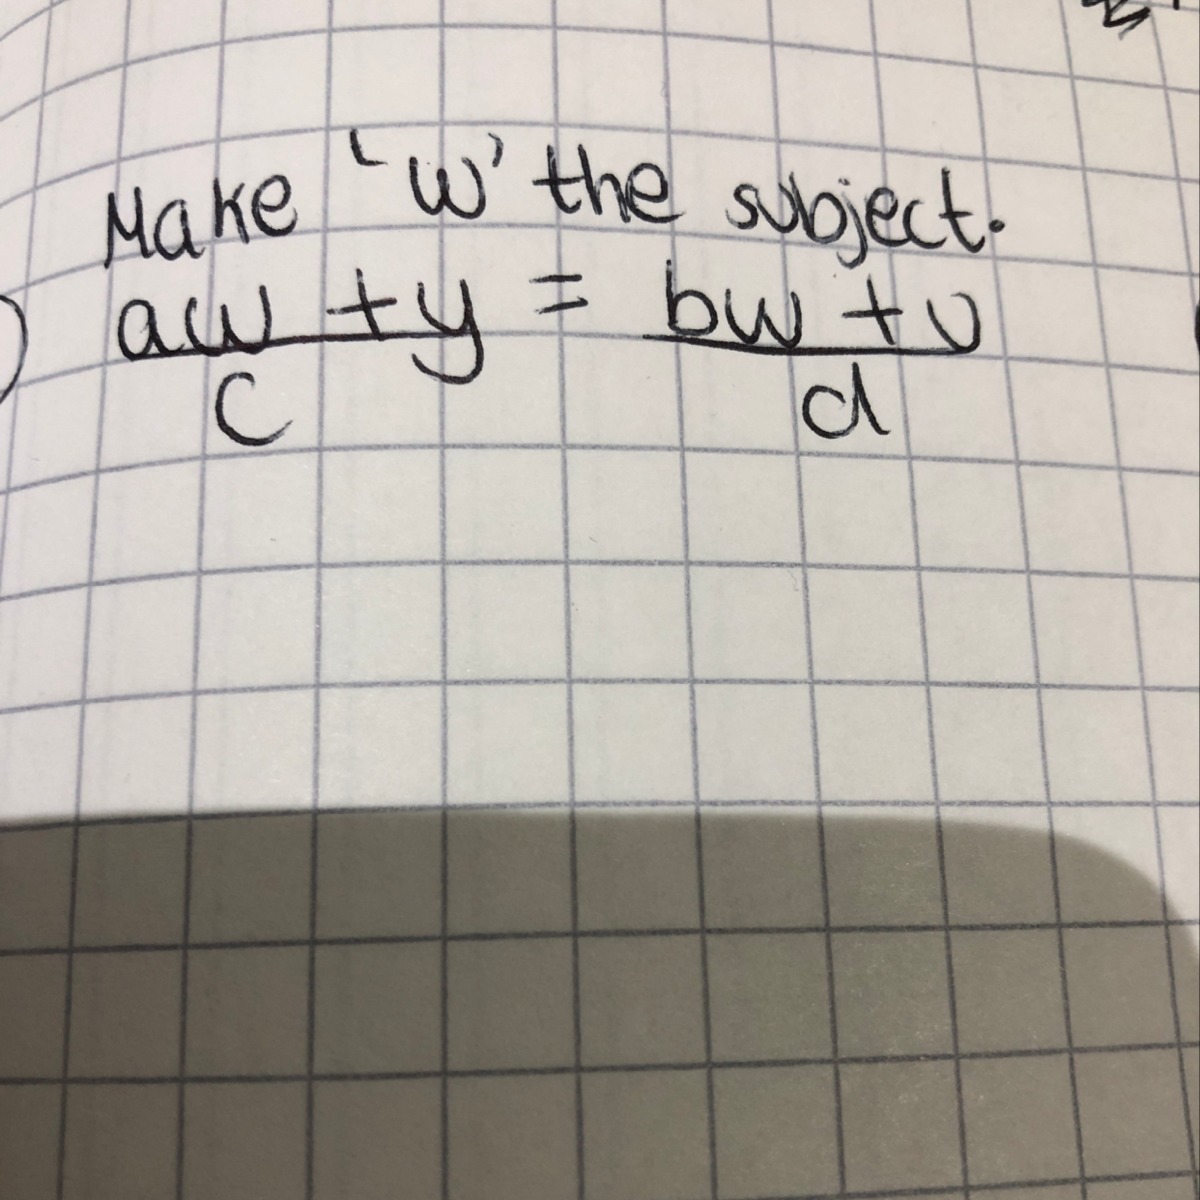 Make 'w' the subject.
aw + y = bw + v
c d